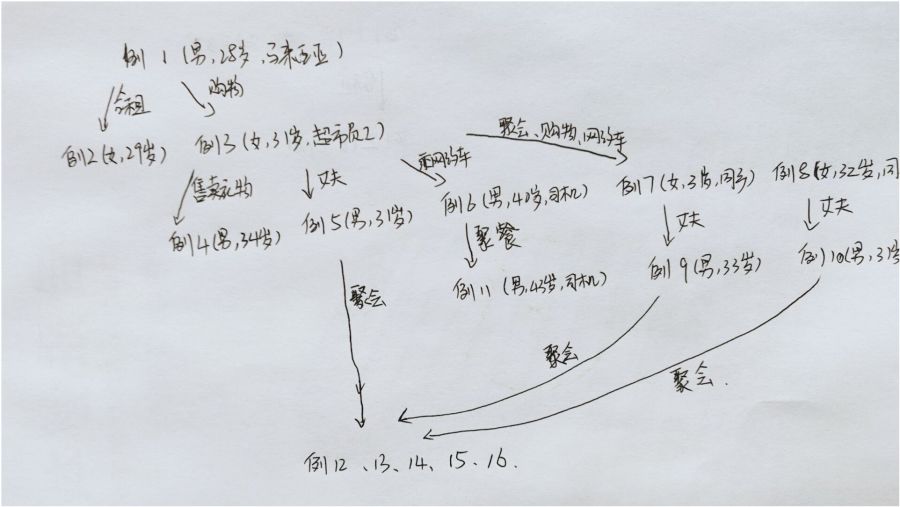 例1(男,28岁,马来西亚)
合租
购物
聚会、购物、网约车
例2(女,29岁)
例3(女,31岁,超市员工)
乘网约车
售卖衣物
丈夫
例4(男,34岁)
例5(男,31岁)
例6(男,40岁,司机)
例7(女,31岁,同事)
例8(女,32岁,同
聚餐
丈夫
丈夫
例11(男,43岁,司机)
例9(男,33岁)
例10(男,31岁
聚会
聚会
聚会.
例12、13、14、15、16.